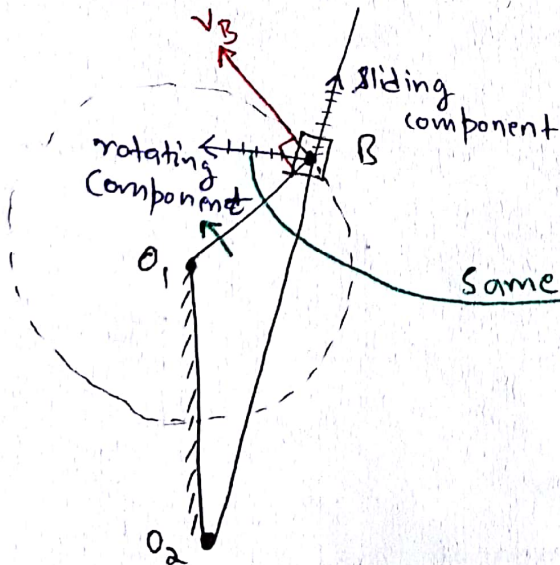 VB
sliding
component
B
rotating
component
O1
Same
O2